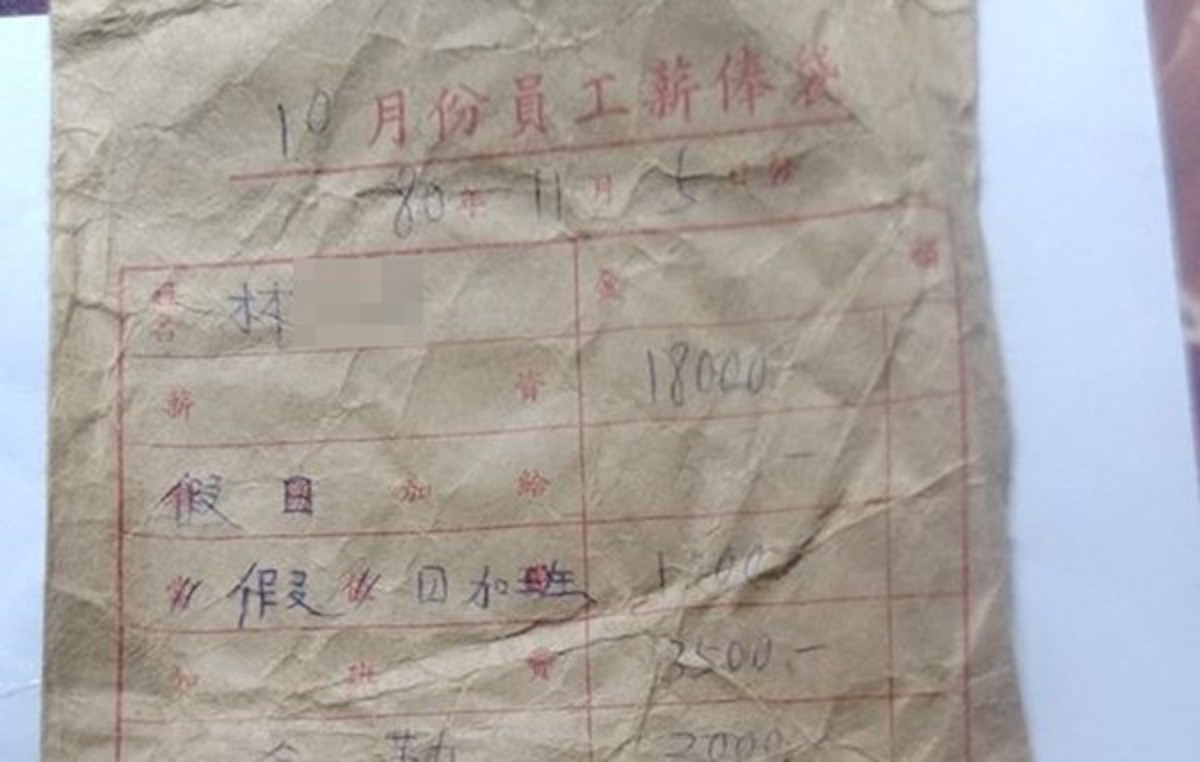 10月份員工薪俸袋
80年11月5日發
姓名 林 金額
薪資 18000
假日加給 —
假日加班
加班費 3500.-
全勤 2000.-